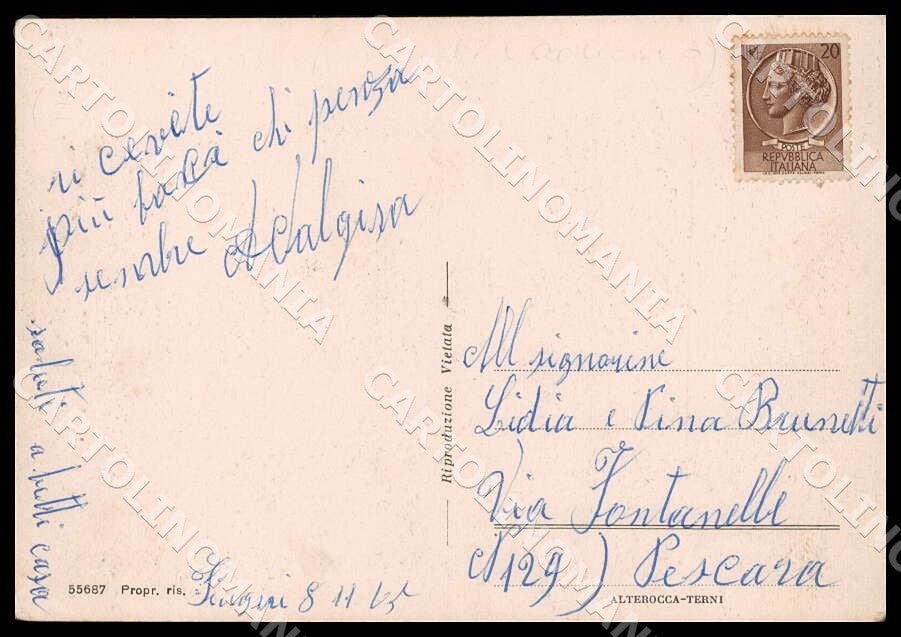 ricevete
più bacia chi penza
sembre Adalgisa
saluti a tutti casa
8 11 65
55687 Propr. ris.
Riproduzione Vietata
20
POSTE
REPVBBLICA
ITALIANA
All signorine
Lidia e Pina Brunetti
Via Fontanelle
N 129) Pescara
ALTEROCCA-TERNI
CARTOLINOMANIA
CARTOLINOMANIA
CARTOLINOMANIA
CARTOLINOMANIA
CARTOLINOMANIA
CARTOLINOMANIA